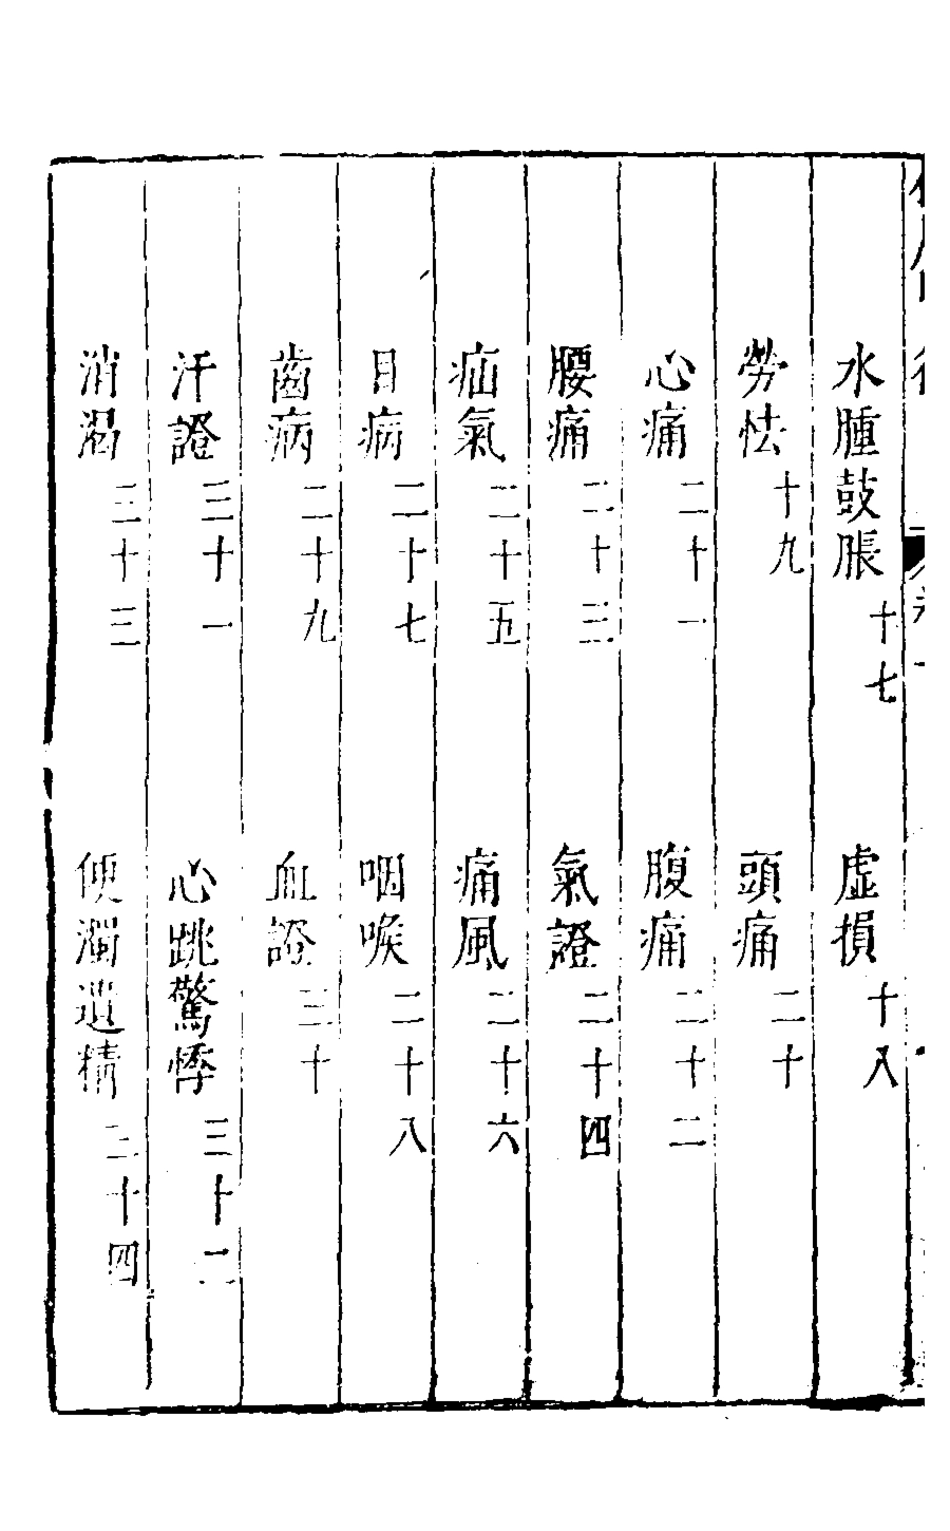 水腫鼓脹十七 虛損十八
勞怯十九 頭痛二十
心痛二十一 腹痛二十二
腰痛二十三 氣證二十四
疝氣二十五 痛風二十六
目病二十七 咽喉二十八
齒病二十九 血證三十
汗證三十一 心跳驚悸三十二
消渴三十三 便濁遺精三十四